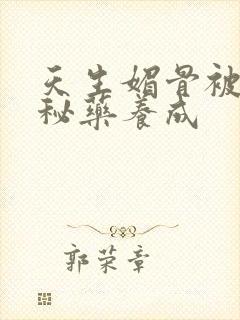 天生媚骨被
秘药养成
郭荣章